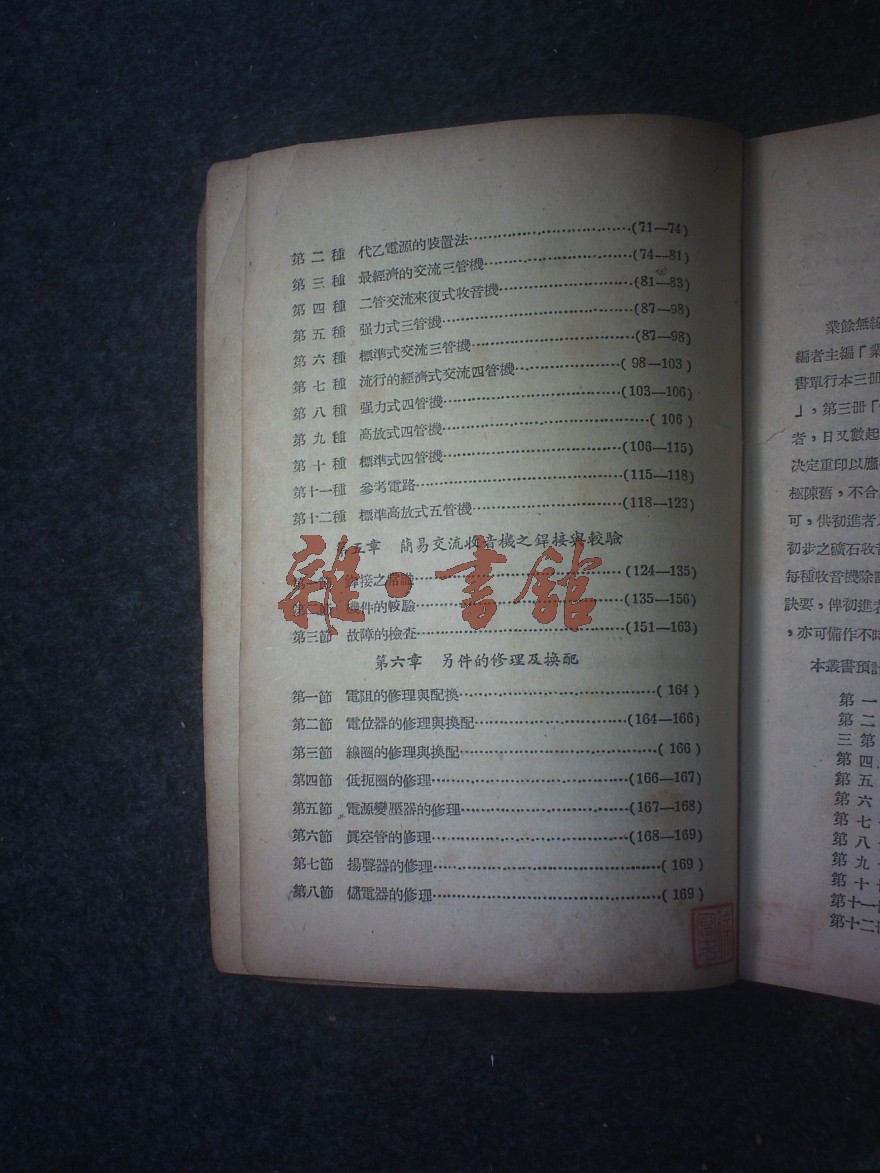 第二種 代乙電源的裝置法…………………………(71—74)
第三種 最經濟的交流三管機…………………………(74—81)
第四種 二管交流來復式收音機…………………………(81—83)
第五種 强力式三管機…………………………(87—98)
第六種 標準式交流三管機…………………………(87—98)
第七種 流行的經濟式交流四管機…………………( 98—103)
第八種 强力式四管機…………………………(103—106)
第九種 高放式四管機…………………………( 106)
第十種 標準式四管機…………………………(106—115)
第十一種 參考電路…………………………(115—118)
第十二種 標準高放式五管機…………………………(118—123)
第五章 簡易交流收音機之銲接與較驗
第一節 銲接之常識…………………………(124—135)
第二節 機件的較驗…………………………(135—156)
第三節 故障的檢查…………………………(151—163)
第六章 另件的修理及換配
第一節 電阻的修理與配換…………………………( 164 )
第二節 電位器的修理與換配…………………………(164—166)
第三節 線圈的修理與換配…………………………( 166 )
第四節 低扼圈的修理…………………………(166—167)
第五節 電源變壓器的修理…………………………(167—168)
第六節 眞空管的修理…………………………(168—169)
第七節 揚聲器的修理…………………………( 169 )
第八節 儲電器的修理…………………………( 169 )
雜·書館
業餘無綫
編者主編「業
書單行本三冊
」，第三冊「
者，日又數起
決定重印以應
極陳舊，不合
可，供初進者
初步之礦石收音
每種收音機除
訣要，俾初進者
，亦可備作不時
本叢書預計
第一
第二
三第
第四
第五
第六
第七
第八
第九
第十
第十一
第十二